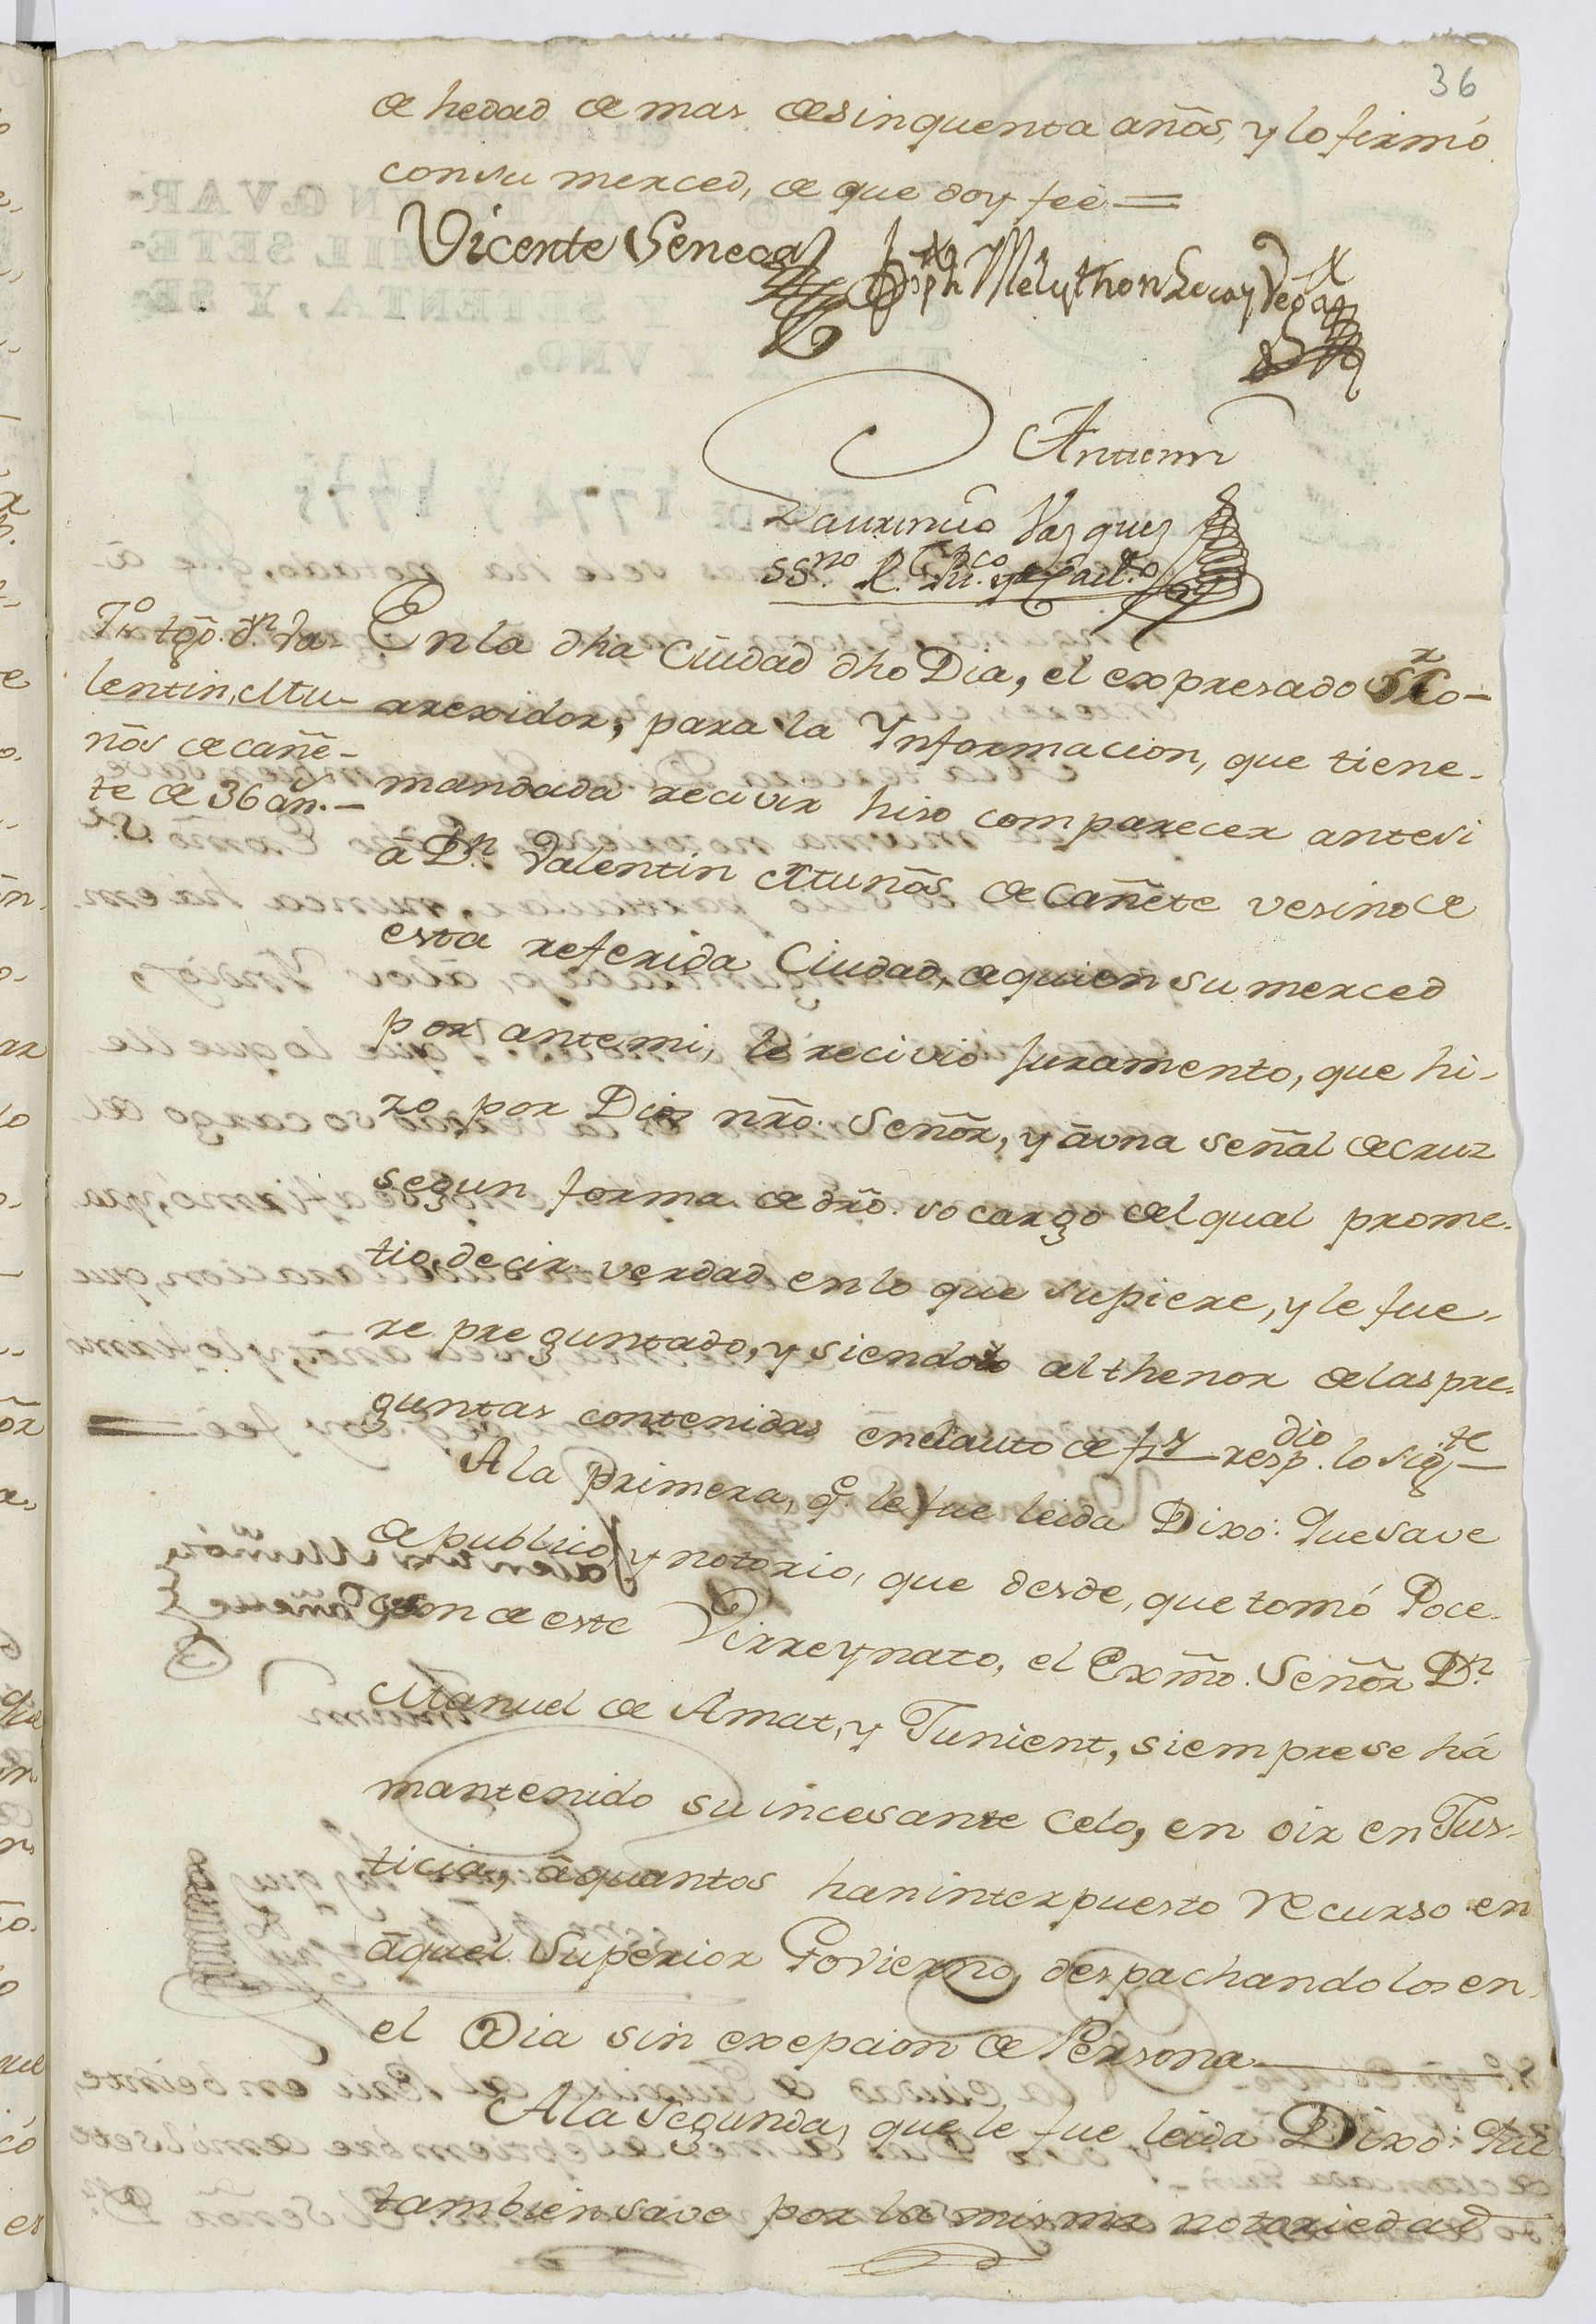 36
de hedad de mas de sinquenta años, y lo firmó
con su merced, de que doy feé =
Vicente Seneca
Jph Melython
Antemi
Vasques
Pu.co y de Cauil.do
7º tgõ. dn. Va-
lentin Mu-
ñós de cañe-
te de 36 añ.
En la dha Ciudad dho Dia, el expresado Sr Co-
rrexidor, para la Ynformacion, que tiene-
mandada recivir hiso comparecer antesi
â Dn. Valentin Muñós de Cañete vesino de
esta referida Ciudad, de quien su merced
por antemi, le recivio Juramento, que hi-
zo por Dios nrõ. Señor, y âuna señal de cruz
segun forma de drõ. so cargo del qual prome-
tio, decir verdad en lo que supiere, y le fue-
re preguntado, y siendolo al thenor de las pre-
guntas contenidas enel auto de resp.dio lo sig.te
Ala primera, q.e le fue leida Dixo: Que save
de publico, y notorio, que desde, que tomó Poce-
cion de este Virreynato, el Exmõ. Señor Dn.
Manuel de Amat, y Junient, siempre se há
mantenido su incesante celo, en oir en Jus-
ticia, âquantos han interpuesto recurso en
âquel Superior Govierno, despachandolos en
el Dia sin exepcion de Persona
Ala Segunda, que le fue leida Dixo: Que
tambien save por la misma notoriedad